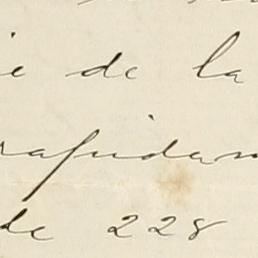 e de la
rapidam
de 228